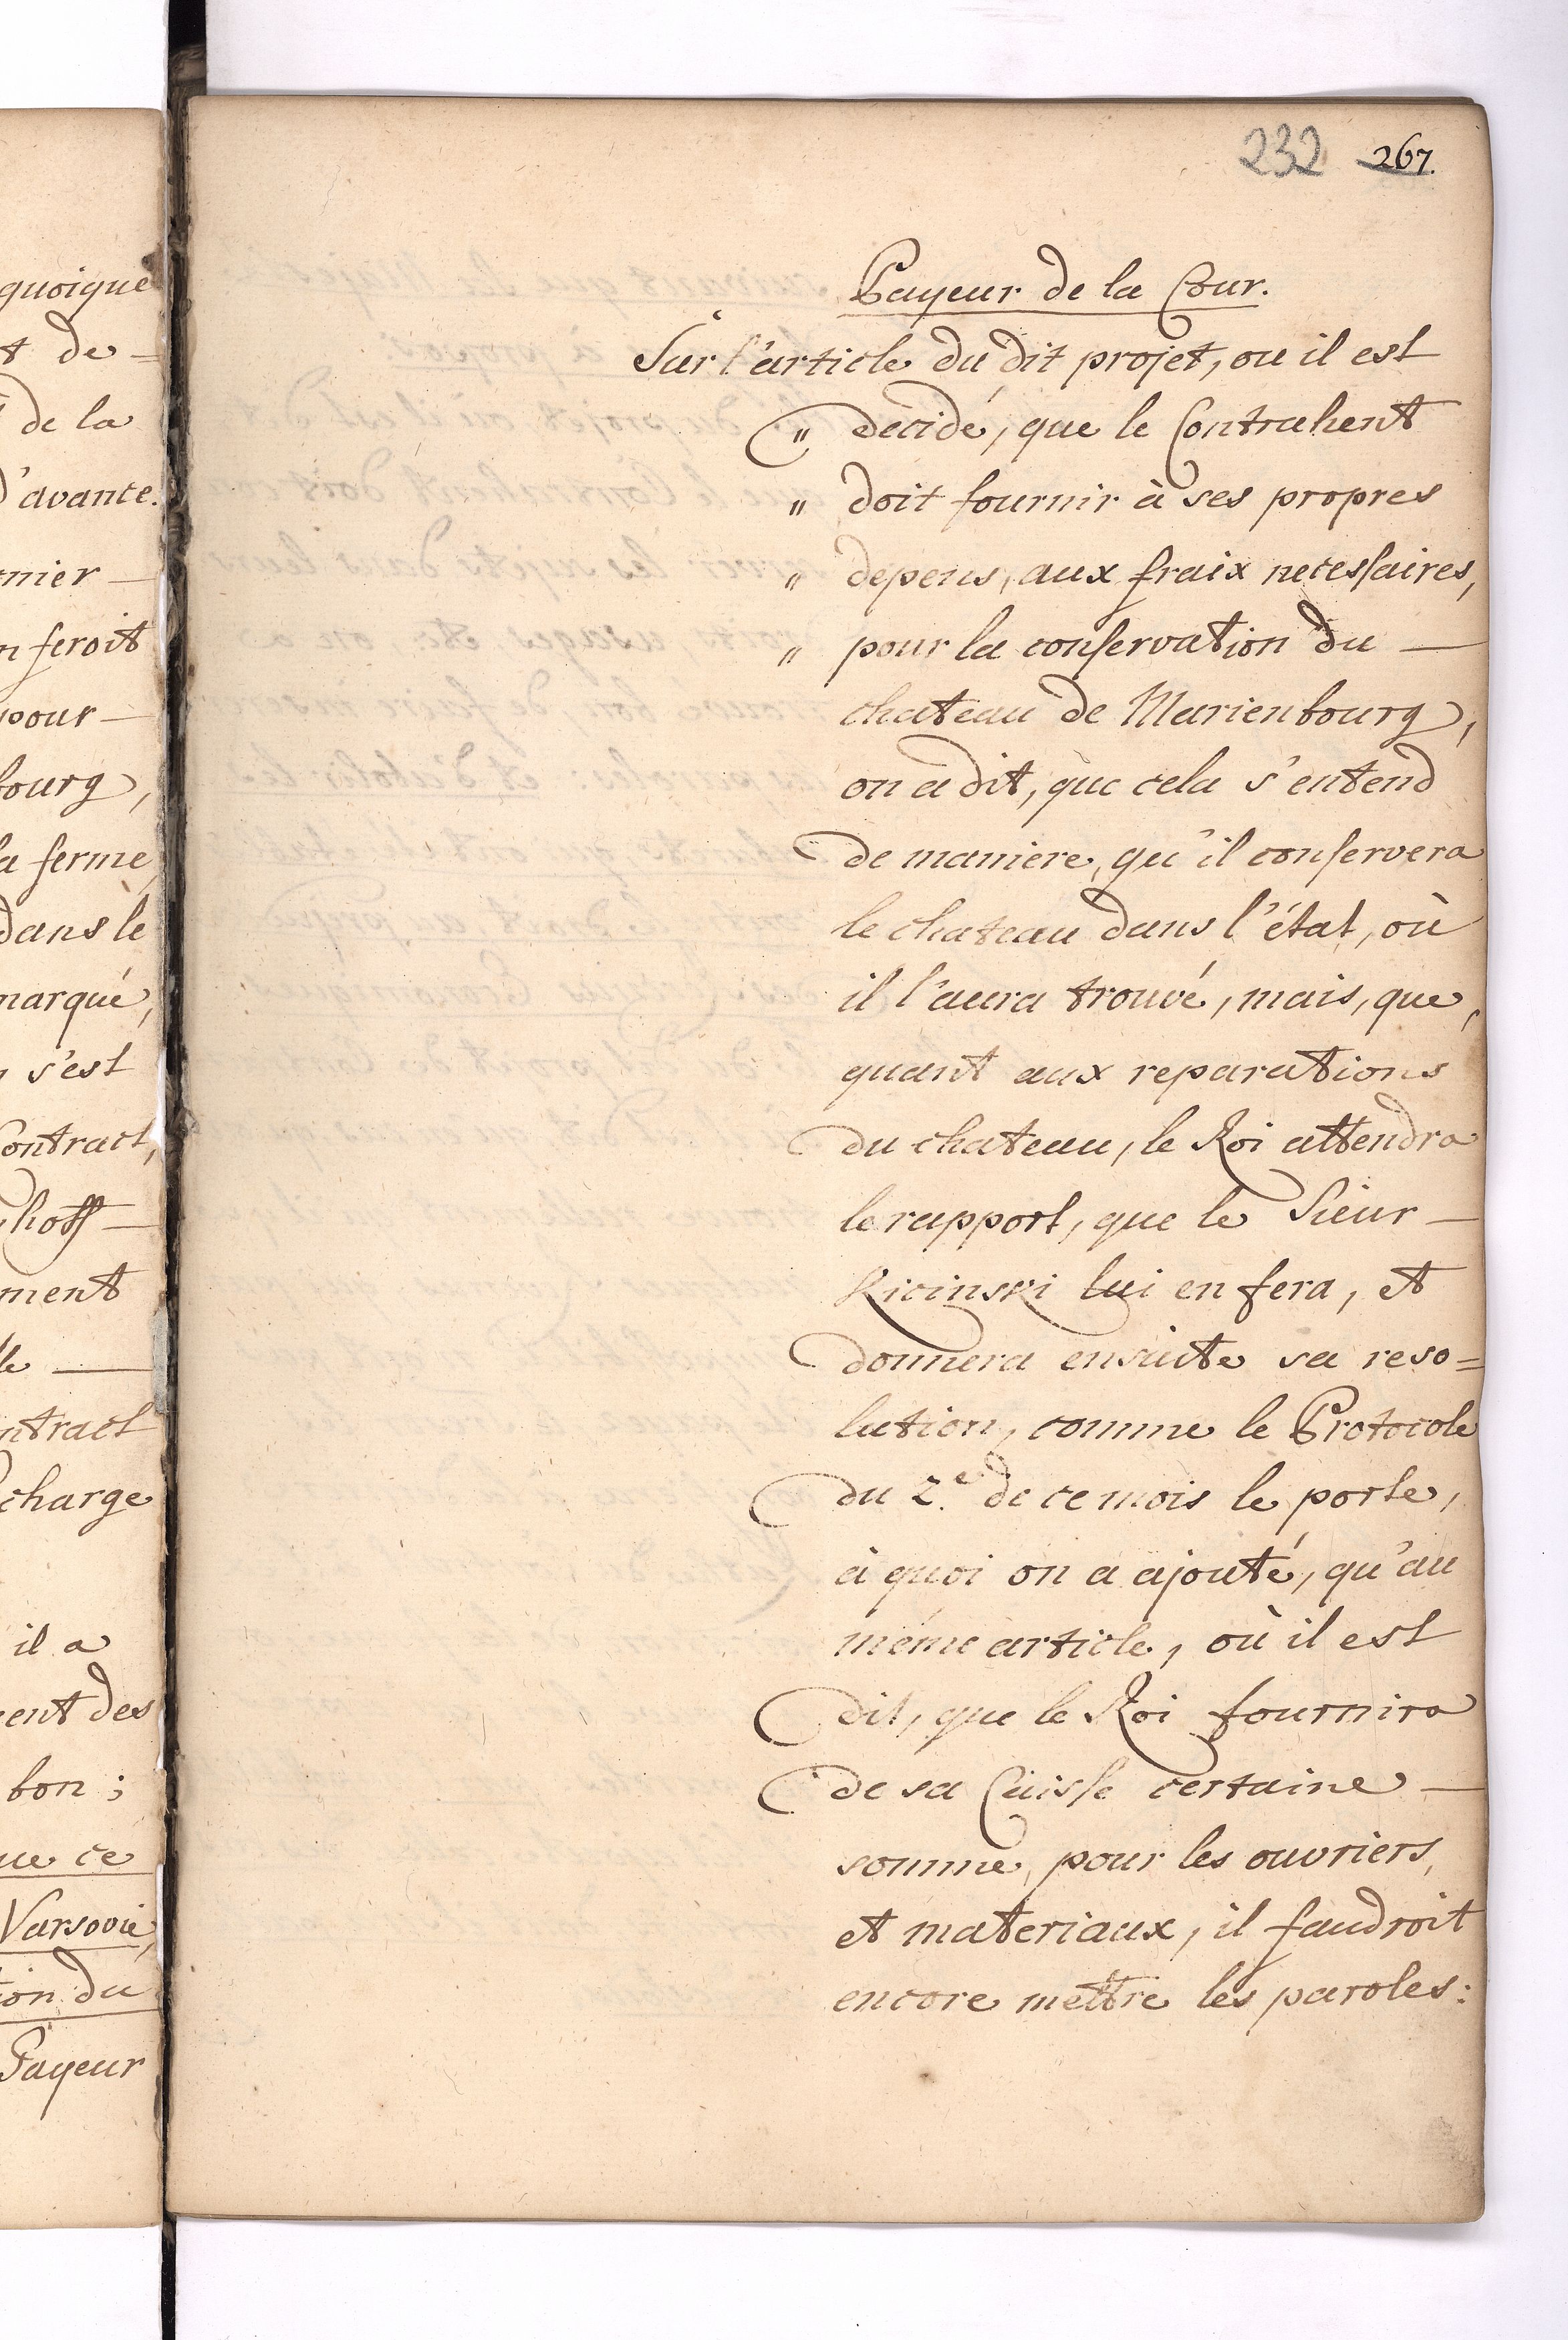 quoique
t de=
de la
d'avance.
mier —
n feroit
pour —
bourg,
la ferme,
dans le
marqué,
s'est
Contract,
hoff —
ment
le —
ntract
charge
il a
ent des
bon;
ue ce
Varsovie,
ion du
Payeur
232 267.
Payeur de la Cour.
Sur l'article du dit projet, ou il est
" decidé, que le Contrahent
" doit fournir à ses propres
" depens, aux fraix necessaires,
" pour la conservation du —
chateau de Marienbourg,
on a dit, que cela s'entend
de maniere, qu'il conservera
le chateau dans l'état, où
il l'aura trouvé, mais, que,
quant aux reparations
du chateau, le Roi attendra
le rapport, que le Sieur —
Kicinski lui en fera, et
donnera ensuite sa reso=
lution, comme le Protocole
du 2.e de ce mois le porte,
à quoi on a ajouté, qu'au
même article, où il est
dit, que le Roi fournira
de sa Caisse certaine —
somme, pour les ouvriers,
et materiaux, il faudroit
encore mettre les paroles: